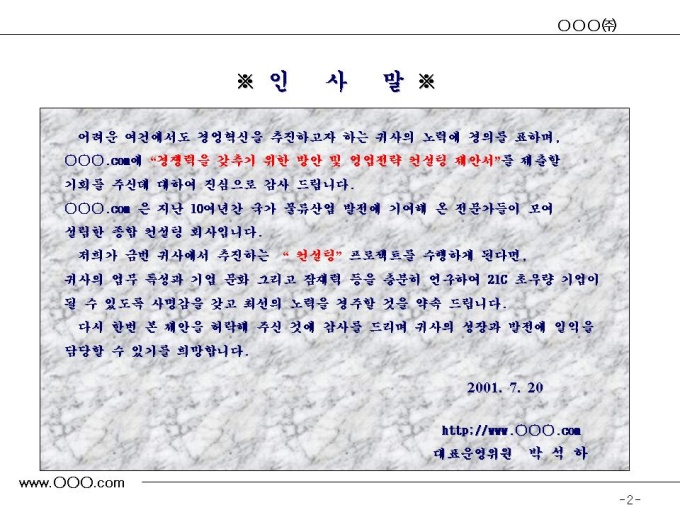 ○○○㈜
※ 인 사 말 ※
어려운 여건에서도 경영혁신을 추진하고자 하는 귀사의 노력에 경의를 표하며,
○○○.com에 “경쟁력을 갖추기 위한 방안 및 영업전략 컨설팅 제안서”를 제출할
기회를 주신데 대하여 진심으로 감사 드립니다.
○○○.com 은 지난 10여년간 국가 물류산업 발전에 기여해 온 전문가들이 모여
설립한 종합 컨설팅 회사입니다.
저희가 금번 귀사에서 추진하는 “ 컨설팅” 프로젝트를 수행하게 된다면,
귀사의 업무 특성과 기업 문화 그리고 잠재력 등을 충분히 연구하여 21C 초우량 기업이
될 수 있도록 사명감을 갖고 최선의 노력을 경주할 것을 약속 드립니다.
다시 한번 본 제안을 허락해 주신 것에 감사를 드리며 귀사의 성장과 발전에 일익을
담당할 수 있기를 희망합니다.
2001. 7. 20
http://www.○○○.com
대표운영위원 박 석 하
www.○○○.com
-2-